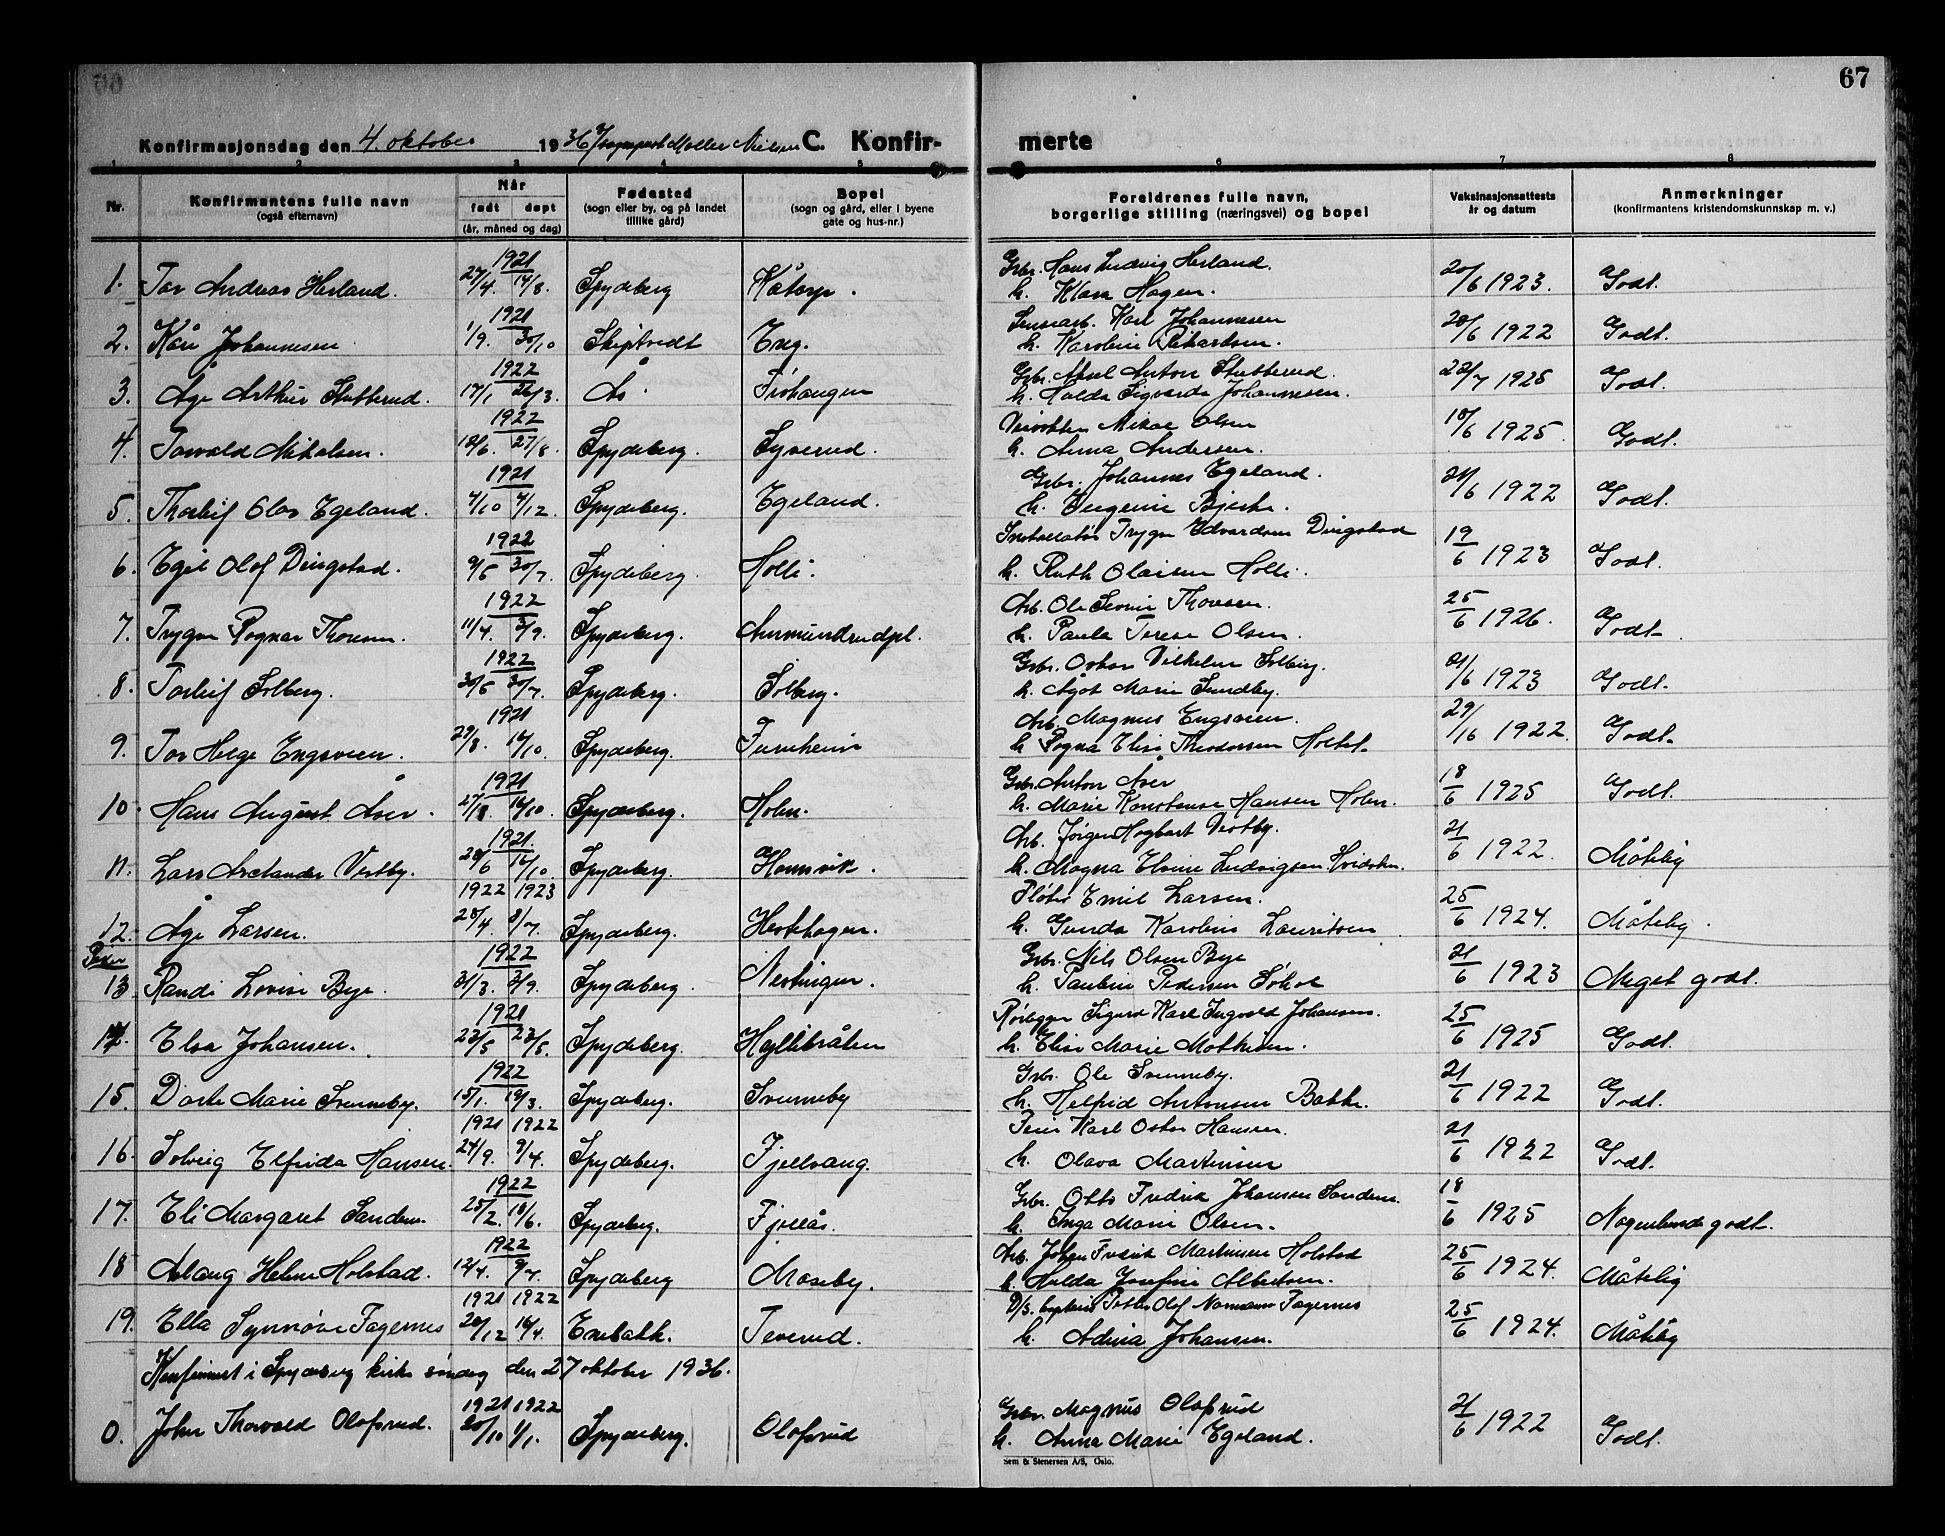 67
Konfirmasjonsdag den 4. oktober 1936 v/sogneprest Møller Nielsen C. Konfir-
merte
1 2 3 4 5
6 7 8
Nr.
Konfirmantens fulle navn
(også efternavn)
Når
født døpt
(år, måned og dag)
Fødested
(sogn eller by, og på landet
tillike gård)
Bopel
(sogn og gård, eller i byene
gate og hus-nr.)
Foreldrenes fulle navn,
borgerlige stilling (næringsvei) og bopel
Vaksinasjonsattests
år og datum
Anmerkninger
(konfirmantens kristendomskunnskap m. v.)
1921
1. Tor Andreas Herland. 27/4. 14/8. Spydeberg Kåtorp.
Gbr. Hans Ludvig Herland.
h. Klara Hagen. 20/6 1923. Godt.
1921
2. Kåre Johannesen 1/9. 30/10 Skiptvedt Eng.
Karl Johannesen
h. Karoline Rikardsen. 20/6 1922 Godt.
1922
3. Åge Arthur Stubberud. 17/1 26/3. Ås
Gbr. Aksel Anton Stubberud.
h. Halda Sigvarda Johannesen. 22/7 1925 Godt.
1922
4. Torvald Mikalsen. 12/6. 27/8. Spydeberg. Syverud.
Mikal Olsen
h. Anna Andersen. 18/6 1925. Godt.
1921
5. Thorleif Olav Egeland. 4/10 4/12. Spydeberg. Egeland.
Gbr. Johannes Egeland.
h. Eugenie Bjerke. 21/6 1922 Godt.
1922
6. Egil Olof Dingstad. 9/5 30/7. Spydeberg. Holli.
Installatør Trygve Edvardsen Dingstad
h. Ruth Olaisen Holli. 19/6 1923 Godt.
1922
7. Trygve Ragnar Thoresen. 11/4. 3/9. Spydeberg. Aamundrudpl.
Arb. Ole Severin Thoresen.
h. Paula Terese Olsen. 25/6 1926. Godt.
1922
8. Torleif Solberg. 30/5 30/7. Spydeberg. Solberg.
Gbr. Oskar Vilhelm Solberg.
h. Ågot Marie Sundby. 21/6 1923 Godt.
1921
9. Tor Helge Engsveen. 29/8. 16/10. Spydeberg. Furuheim
Arb. Magnus Engsveen.
h. Ragna Elise Theodorsen Holtet. 29/16 1922. Godt.
1921
10. Hans August Åser. 27/8. 16/10. Spydeberg. Holm.
Gbr. Anton Åser
h. Marie Konstanse Hansen Holm. 18/6 1925 Godt.
1921.
11. Lars Arelander Vestby. 28/6 16/10. Spydeberg. Hannsvik.
Arb. Jørgen Hagbart Vestby.
h. Magna Elvine Ludvigsen Hvidsten. 21/6 1922. Måtelig
1922 1923
12. Åge Larsen. 28/4. 8/7. Spydeberg. Hestehagen.
Fløter Emil Larsen.
h. Gunda Karoline Lauritsen 25/6 1924. Måtelig.
Piker
1922
13 Randi Lovise Bye. 31/3. 3/9. Spydeberg.
Gbr. Nils Olsen Bye
h. Pauline Pedersen Søhol 21/6 1923 Meget godt.
1921
14. Elsa Johansen. 23/5 23/8. Spydeberg. Hyllibråten
Rørlegger Sigurd Karl Ingvald Johansen.
h. Elise Marie Mathisen. 25/6 1925 Godt.
1922
15. Dorte Marie Svenneby. 15/1. 19/3. Spydeberg. Svenneby
Gbr. Ole Svenneby.
h. Helfrid Antonsen Bakke. 21/6 1922 Godt.
1921 1922
16. Solveig Elfrida Hansen. 24/9. 9/4. Spydeberg. Fjellvang.
Feier Karl Oskar Hansen.
h. Olava Martinsen 21/6 1922 Godt.
1922
17. Eli Margaret Sandem. 25/2. 18/6. Spydeberg. Fjellås.
Gbr. Otto Fredrik Johansen Sandem.
h. Inga Marie Olsen. 18/6 1925 Nogenlunde godt.
1922
18 Aslaug Helene Holstad. 12/4. 9/7. Spydeberg Moseby.
Arb. Johan Fredrik Martinsen Holstad
h. Hulda Josefine Albertsen. 25/6 1924. Måtelig
1921 1922
19. Ella Synnøve Fagernes 20/12 16/4. Enebakk. Teverud.
D/S. kaptein Peter Olof Normann Fagernes
h. Adina Johansen. 25/6 1924. Måtelig
Konfirmert i Spydeberg kirke søndag den 27 oktober 1936.
1921 1922
0. John Thorvald Olafsrud. 20/10 1/1. Spydeberg. Olafsrud
Gbr. Magnus Olafsrud
h. Anna Marie Egeland. 21/6 1922 Godt.
Sem & Stenersen A/S, Oslo.